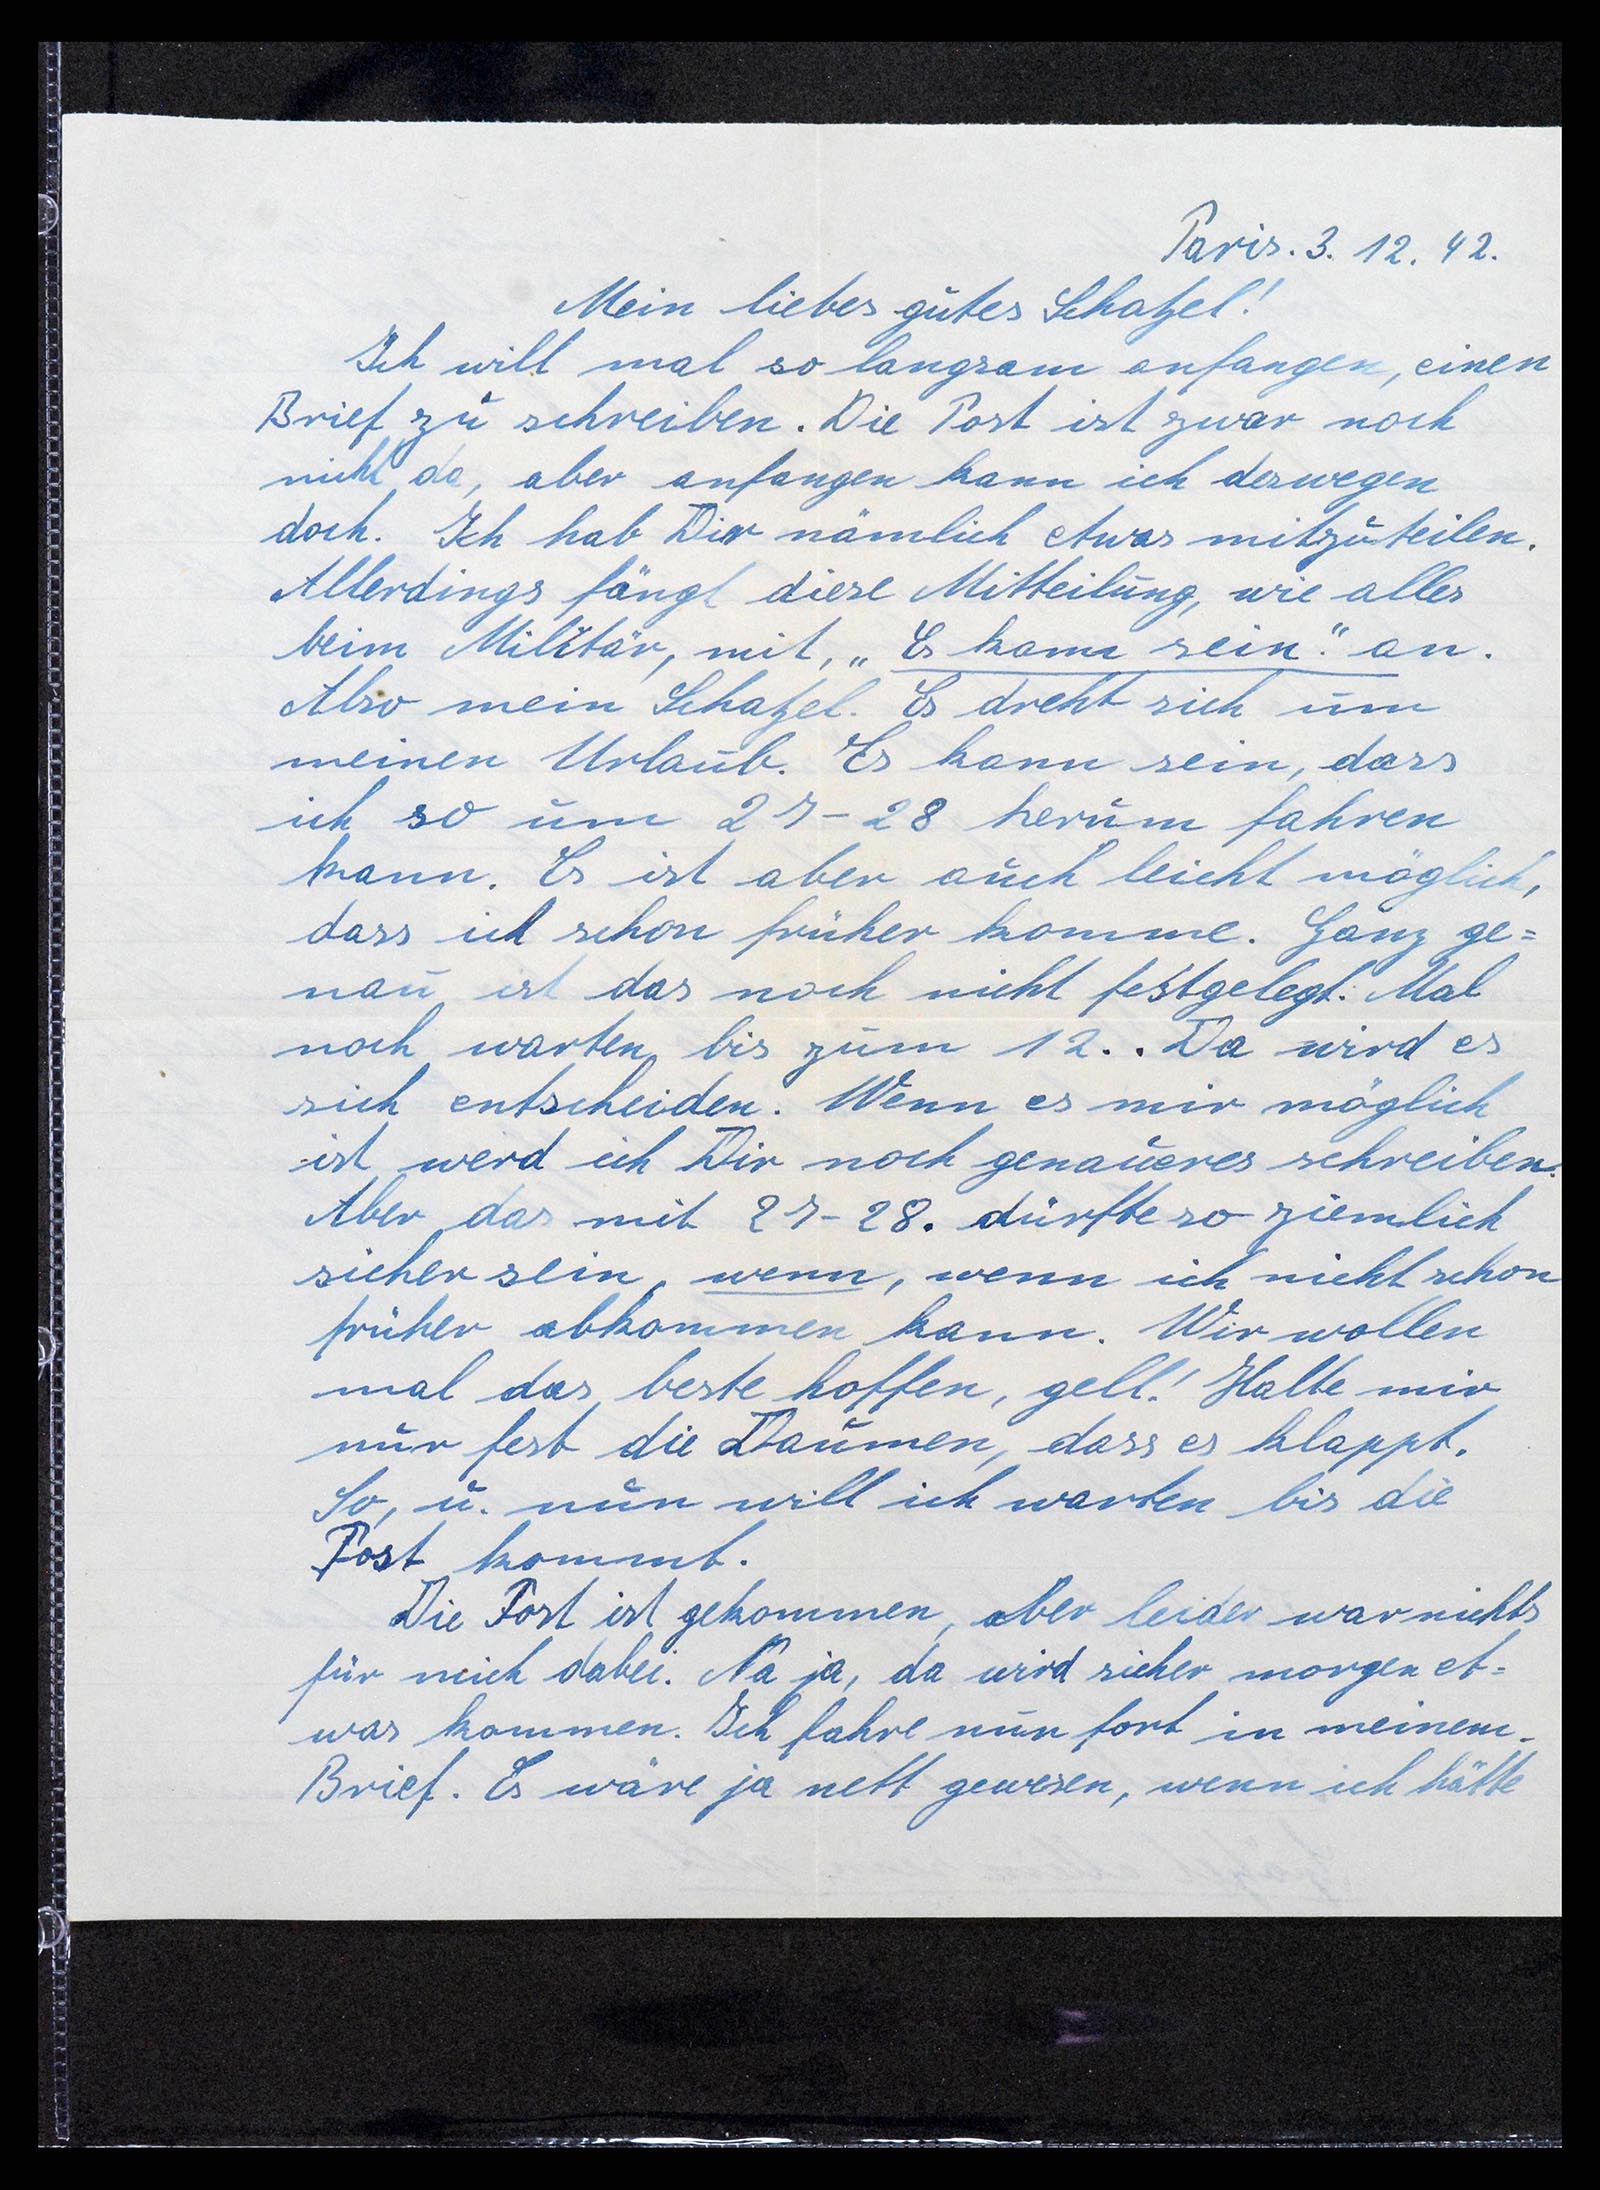 Paris. 3. 12. 42.
Mein liebes gutes Schatzel!
Ich will mal so langsam anfangen, einen
Brief zu schreiben. Die Post ist zwar noch
nicht da, aber anfangen kann ich deswegen
doch. Ich hab Dir nämlich etwas mitzuteilen.
Allerdings fängt diese Mitteilung, wie alles
beim Militär, mit, „Es kann sein." an.
Also mein Schatzel. Es dreht sich um
meinen Urlaub. Es kann sein, dass
ich so um 27-28 herum fahren
kann. Es ist aber auch leicht möglich,
dass ich schon früher komme. Ganz ge=
nau ist das noch nicht festgelegt. Mal
noch warten, bis zum 12.. Da wird es
sich entscheiden. Wenn es mir möglich
ist werd ich Dir noch genaueres schreiben.
Aber das mit 27-28. dürfte so ziemlich
sicher sein, wenn, wenn ich nicht schon
früher abkommen kann. Wir wollen
mal das beste hoffen, gell! Halte mir
nur fest die Daumen, dass es klappt.
So, u. nun will ich warten bis die
Post kommt.
Die Post ist gekommen, aber leider war nichts
für mich dabei. Na ja, da wird sicher morgen et=
was kommen. Ich fahre nun fort in meinem
Brief. Es wäre ja nett gewesen, wenn ich hätte